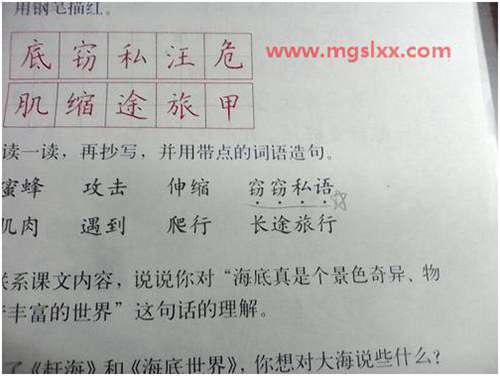 用钢笔描红。
www.mgslxx.com
底 窃 私 汪 危
肌 缩 途 旅 甲
读一读，再抄写，并用带点的词语造句。
蜜蜂 攻击 伸缩 窃窃私语
肌肉 遇到 爬行 长途旅行
联系课文内容，说说你对“海底真是个景色奇异、物
产丰富的世界”这句话的理解。
了《赶海》和《海底世界》，你想对大海说些什么？